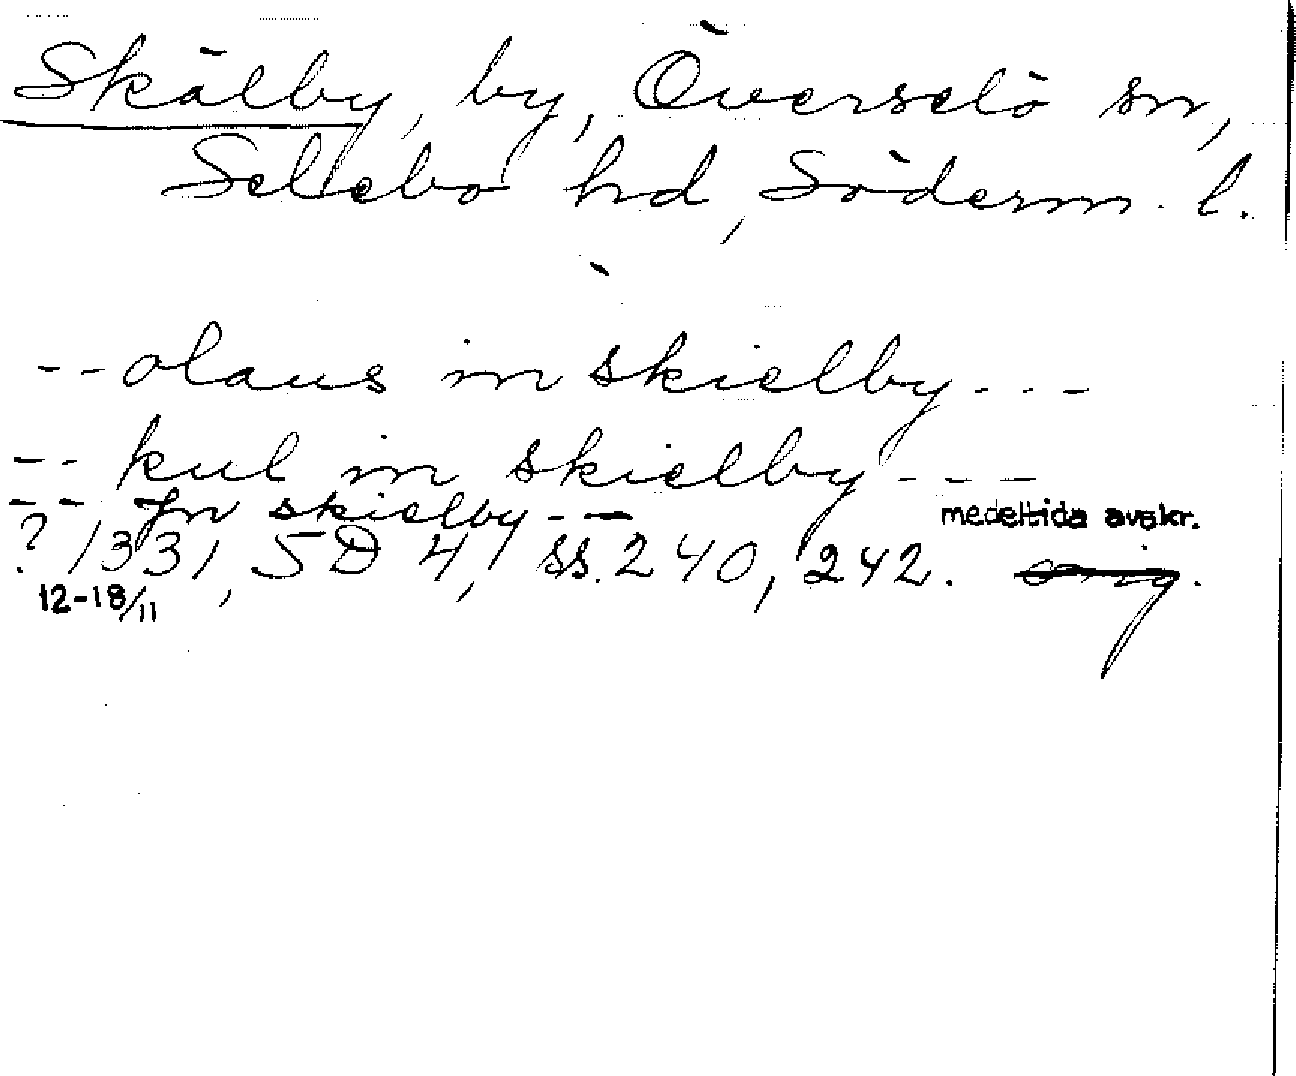 Skälby, by, Överselö sn,
Selebo hd, Söderm. l.
-- olaus in skielby ---
-- kul in skielby ---
-- Jn skielby --
medeltida avskr.
? 1331, SD 4, ss. 240, 242. orig.
12-18/11